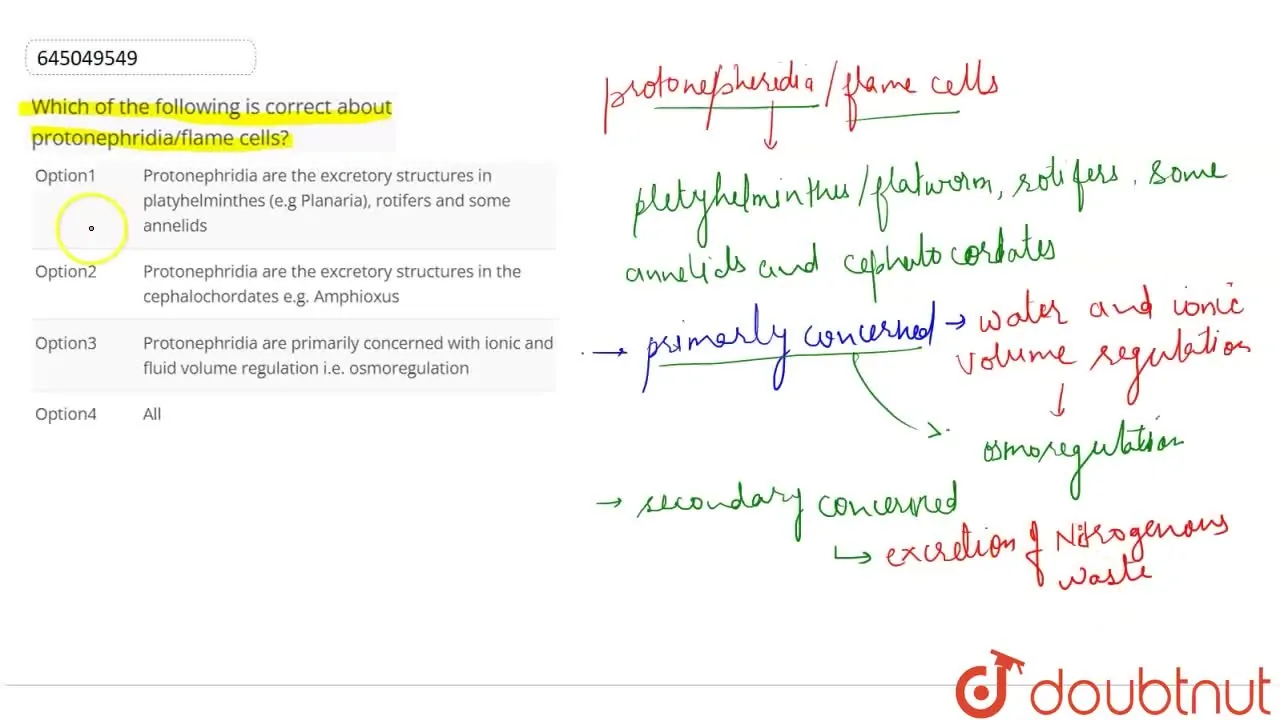 645049549
Which of the following is correct about
protonephridia/flame cells?
Option1 Protonephridia are the excretory structures in
platyhelminthes (e.g Planaria), rotifers and some
annelids
Option2 Protonephridia are the excretory structures in the
cephalochordates e.g. Amphioxus
Option3 Protonephridia are primarily concerned with ionic and
fluid volume regulation i.e. osmoregulation
Option4 All
protonepheridia/flame cells
pletyhelminthus/flatworm, rotifers, some
annelids and cephalocordates
→ primarly concerned → water and ionic
volume regulation
osmoregulation
→ secondary concerned
↳ excretion of Nitrogenous
waste
doubtnut